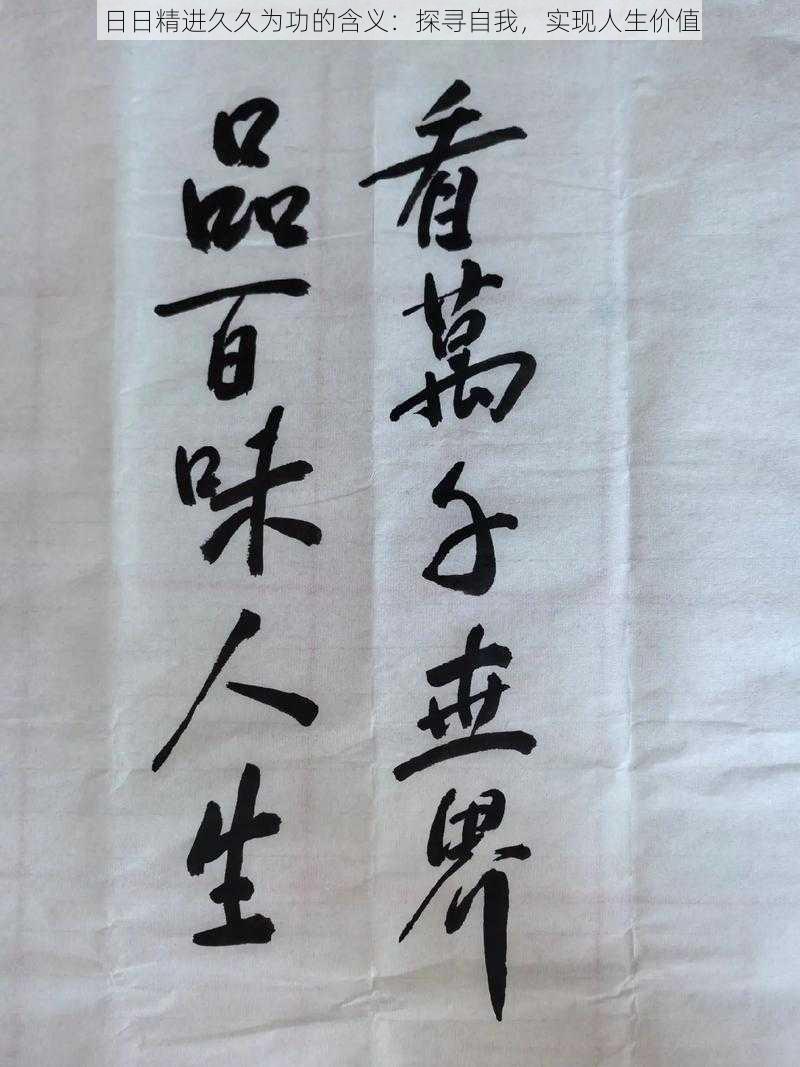 日日精进久久为功的含义：探寻自我，实现人生价值
看萬千世界
品百味人生